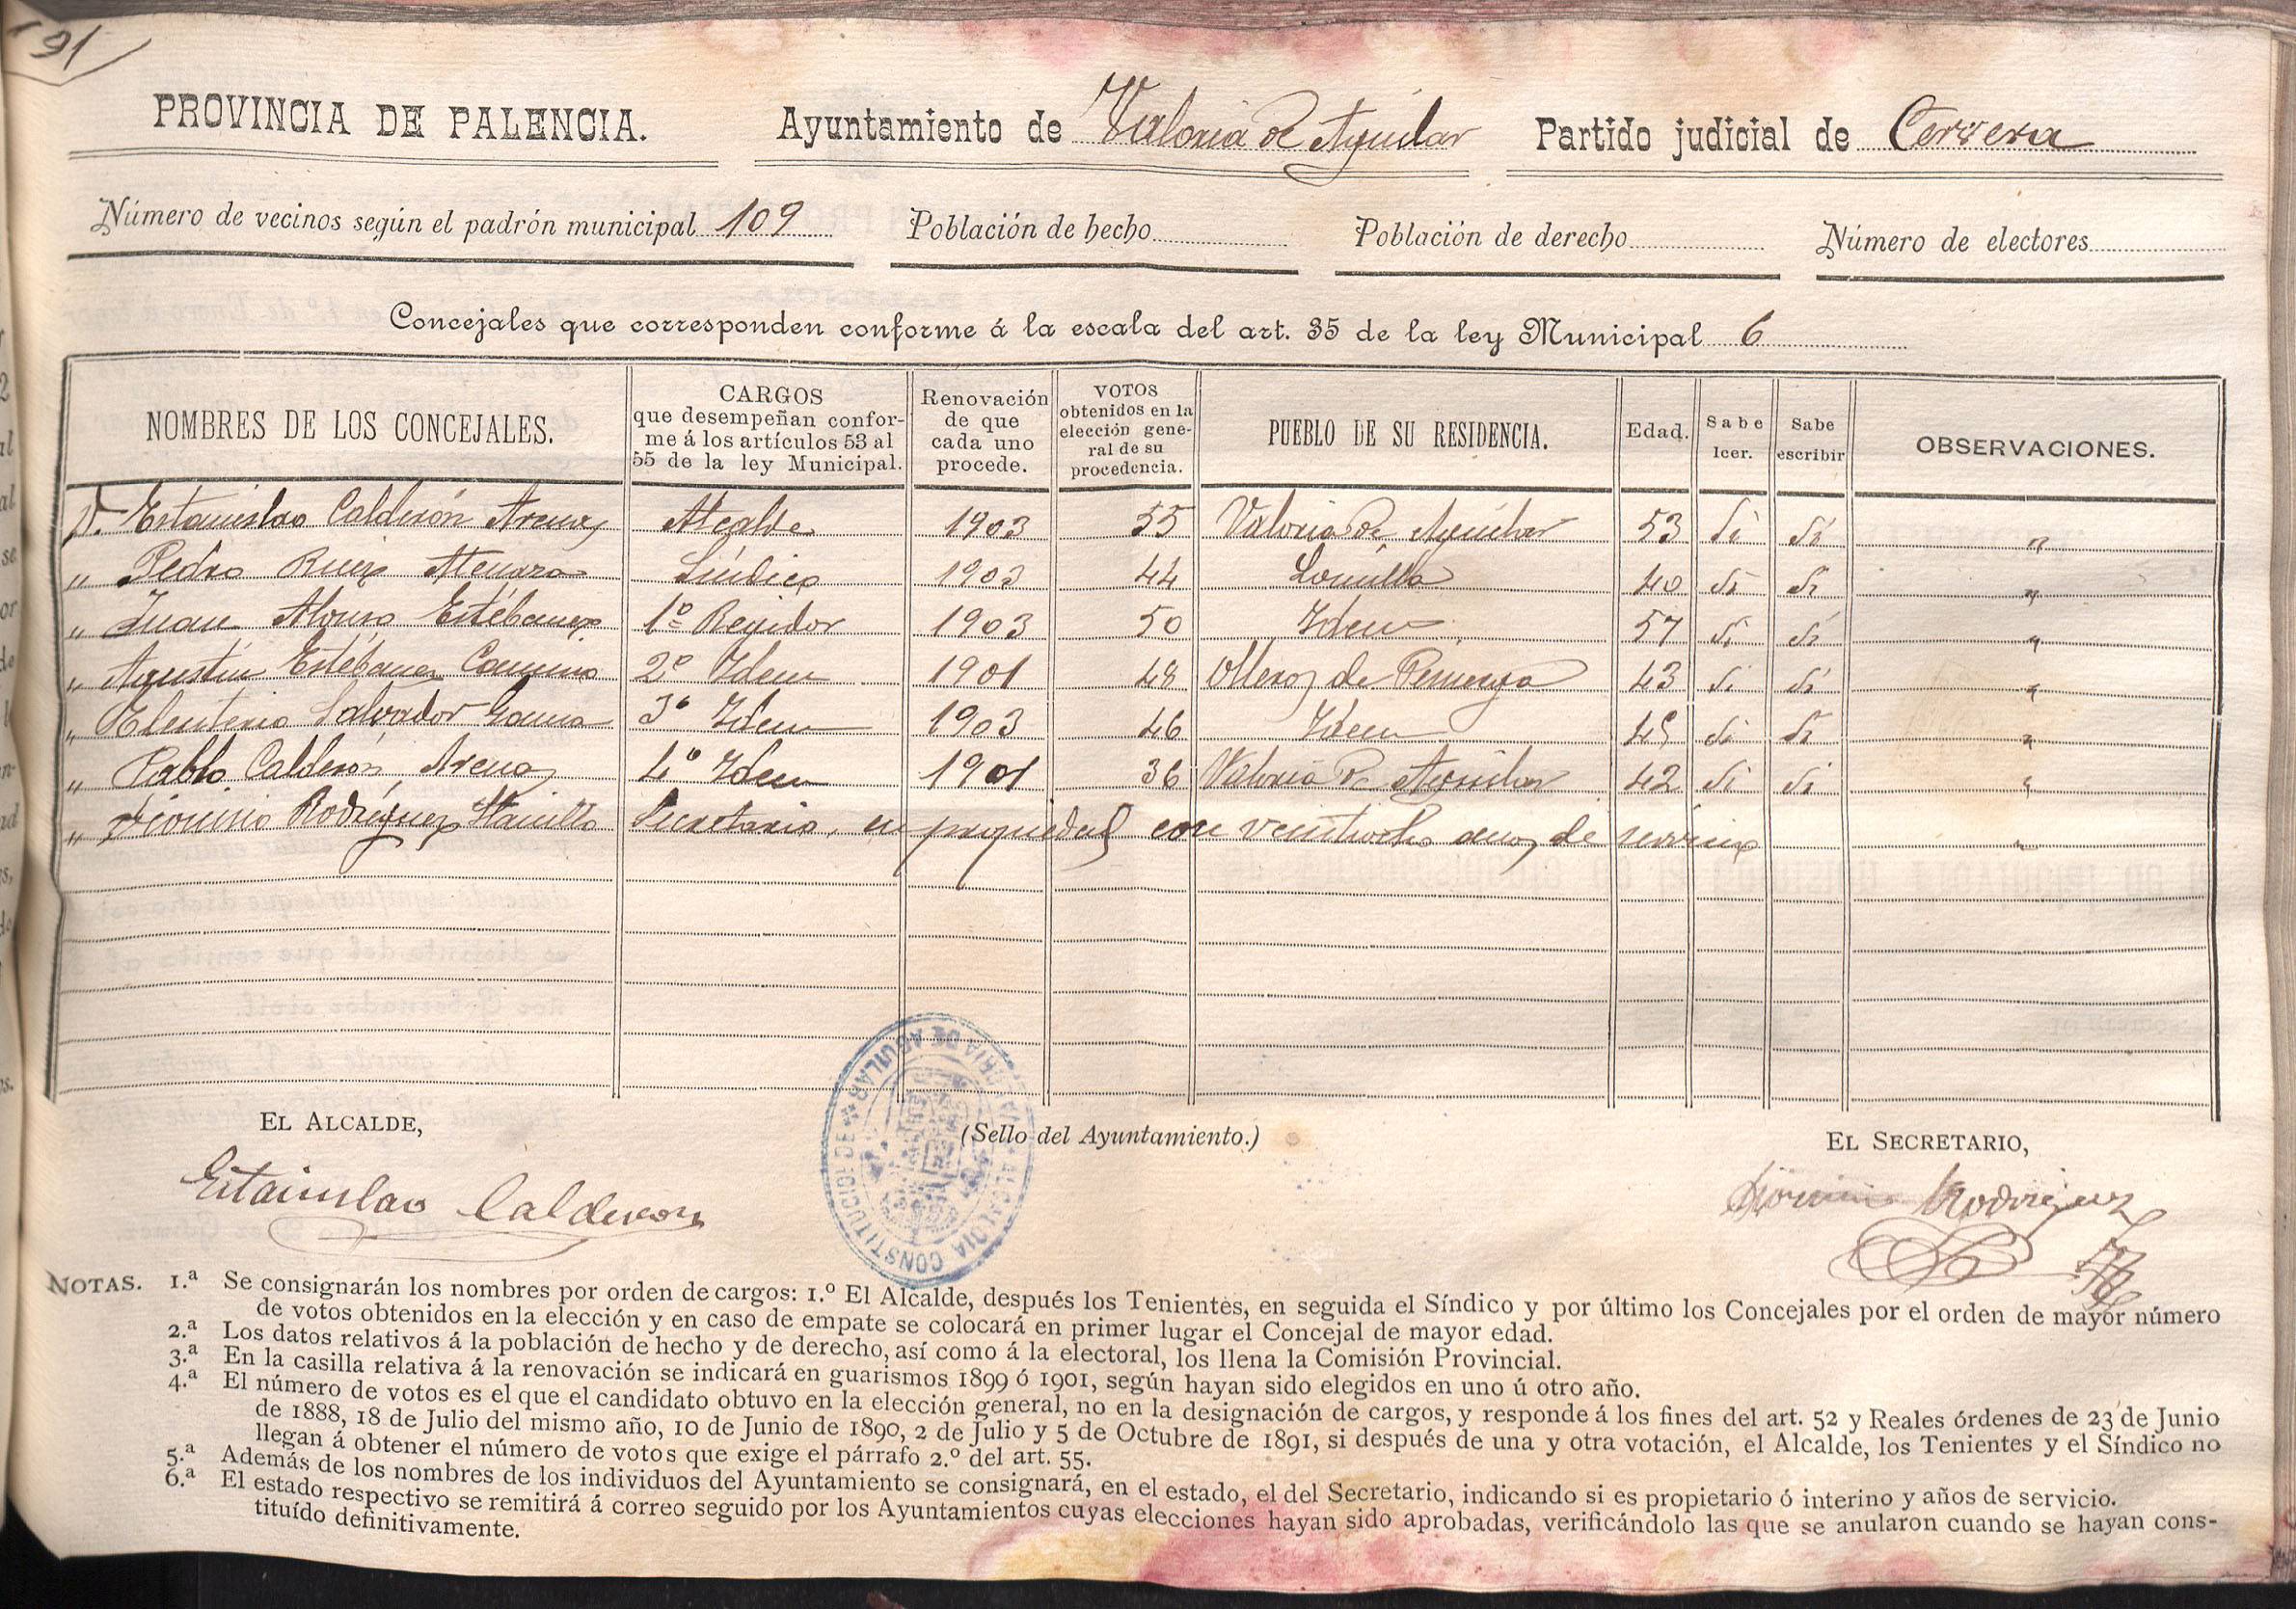 91
PROVINCIA DE PALENCIA. Ayuntamiento de Valoria de Aguilar Partido judicial de Cervera
Número de vecinos según el padrón municipal 109 Población de hecho Población de derecho Número de electores
Concejales que corresponden conforme á la escala del art. 35 de la ley Municipal 6
NOMBRES DE LOS CONCEJALES. CARGOS que desempeñan conforme á los artículos 53 al 55 de la ley Municipal. Renovación de que cada uno procede. VOTOS obtenidos en la elección general de su procedencia. PUEBLO DE SU RESIDENCIA. Edad. Sabe leer. Sabe escribir OBSERVACIONES.
D. Estanislao Calderón Arenas Alcalde 1903 55 Valoria de Aguilar 53 Si Si "
" Pedro Ruiz Síndico 1903 44 Lomilla 40 Si Si "
" Juan Alonso Estébanez 1º Regidor 1903 50 Idem 57 Si Si "
" Agustín Estébanez 2º Idem 1901 48 Olleros de Pisuerga 43 Si Si "
" Eleuterio Salvador 3º Idem 1903 46 Idem 45 Si Si "
" Pablo Calderón Arenas 4º Idem 1901 36 Valoria de Aguilar 42 Si Si "
" Dionisio Rodríguez Secretario, en propiedad con veintiocho años de servicio "
EL ALCALDE, (Sello del Ayuntamiento.) EL SECRETARIO,
ALCALDIA CONSTITUCIOL DE VALORIA DE AGUILAR
Estanislao Calderon Dionisio Rodriguez
NOTAS. 1.ª Se consignarán los nombres por orden de cargos: 1.º El Alcalde, después los Tenientes, en seguida el Síndico y por último los Concejales por el orden de mayor número
de votos obtenidos en la elección y en caso de empate se colocará en primer lugar el Concejal de mayor edad.
2.ª Los datos relativos á la población de hecho y de derecho, así como á la electoral, los llena la Comisión Provincial.
3.ª En la casilla relativa á la renovación se indicará en guarismos 1899 ó 1901, según hayan sido elegidos en uno ú otro año.
4.ª El número de votos es el que el candidato obtuvo en la elección general, no en la designación de cargos, y responde á los fines del art. 52 y Reales órdenes de 23 de Junio
de 1888, 18 de Julio del mismo año, 10 de Junio de 1890, 2 de Julio y 5 de Octubre de 1891, si después de una y otra votación, el Alcalde, los Tenientes y el Síndico no
llegan á obtener el número de votos que exige el párrafo 2.º del art. 55.
5.ª Además de los nombres de los individuos del Ayuntamiento se consignará, en el estado, el del Secretario, indicando si es propietario ó interino y años de servicio.
6.ª El estado respectivo se remitirá á correo seguido por los Ayuntamientos cuyas elecciones hayan sido aprobadas, verificándolo las que se anularon cuando se hayan cons-
tituído definitivamente.